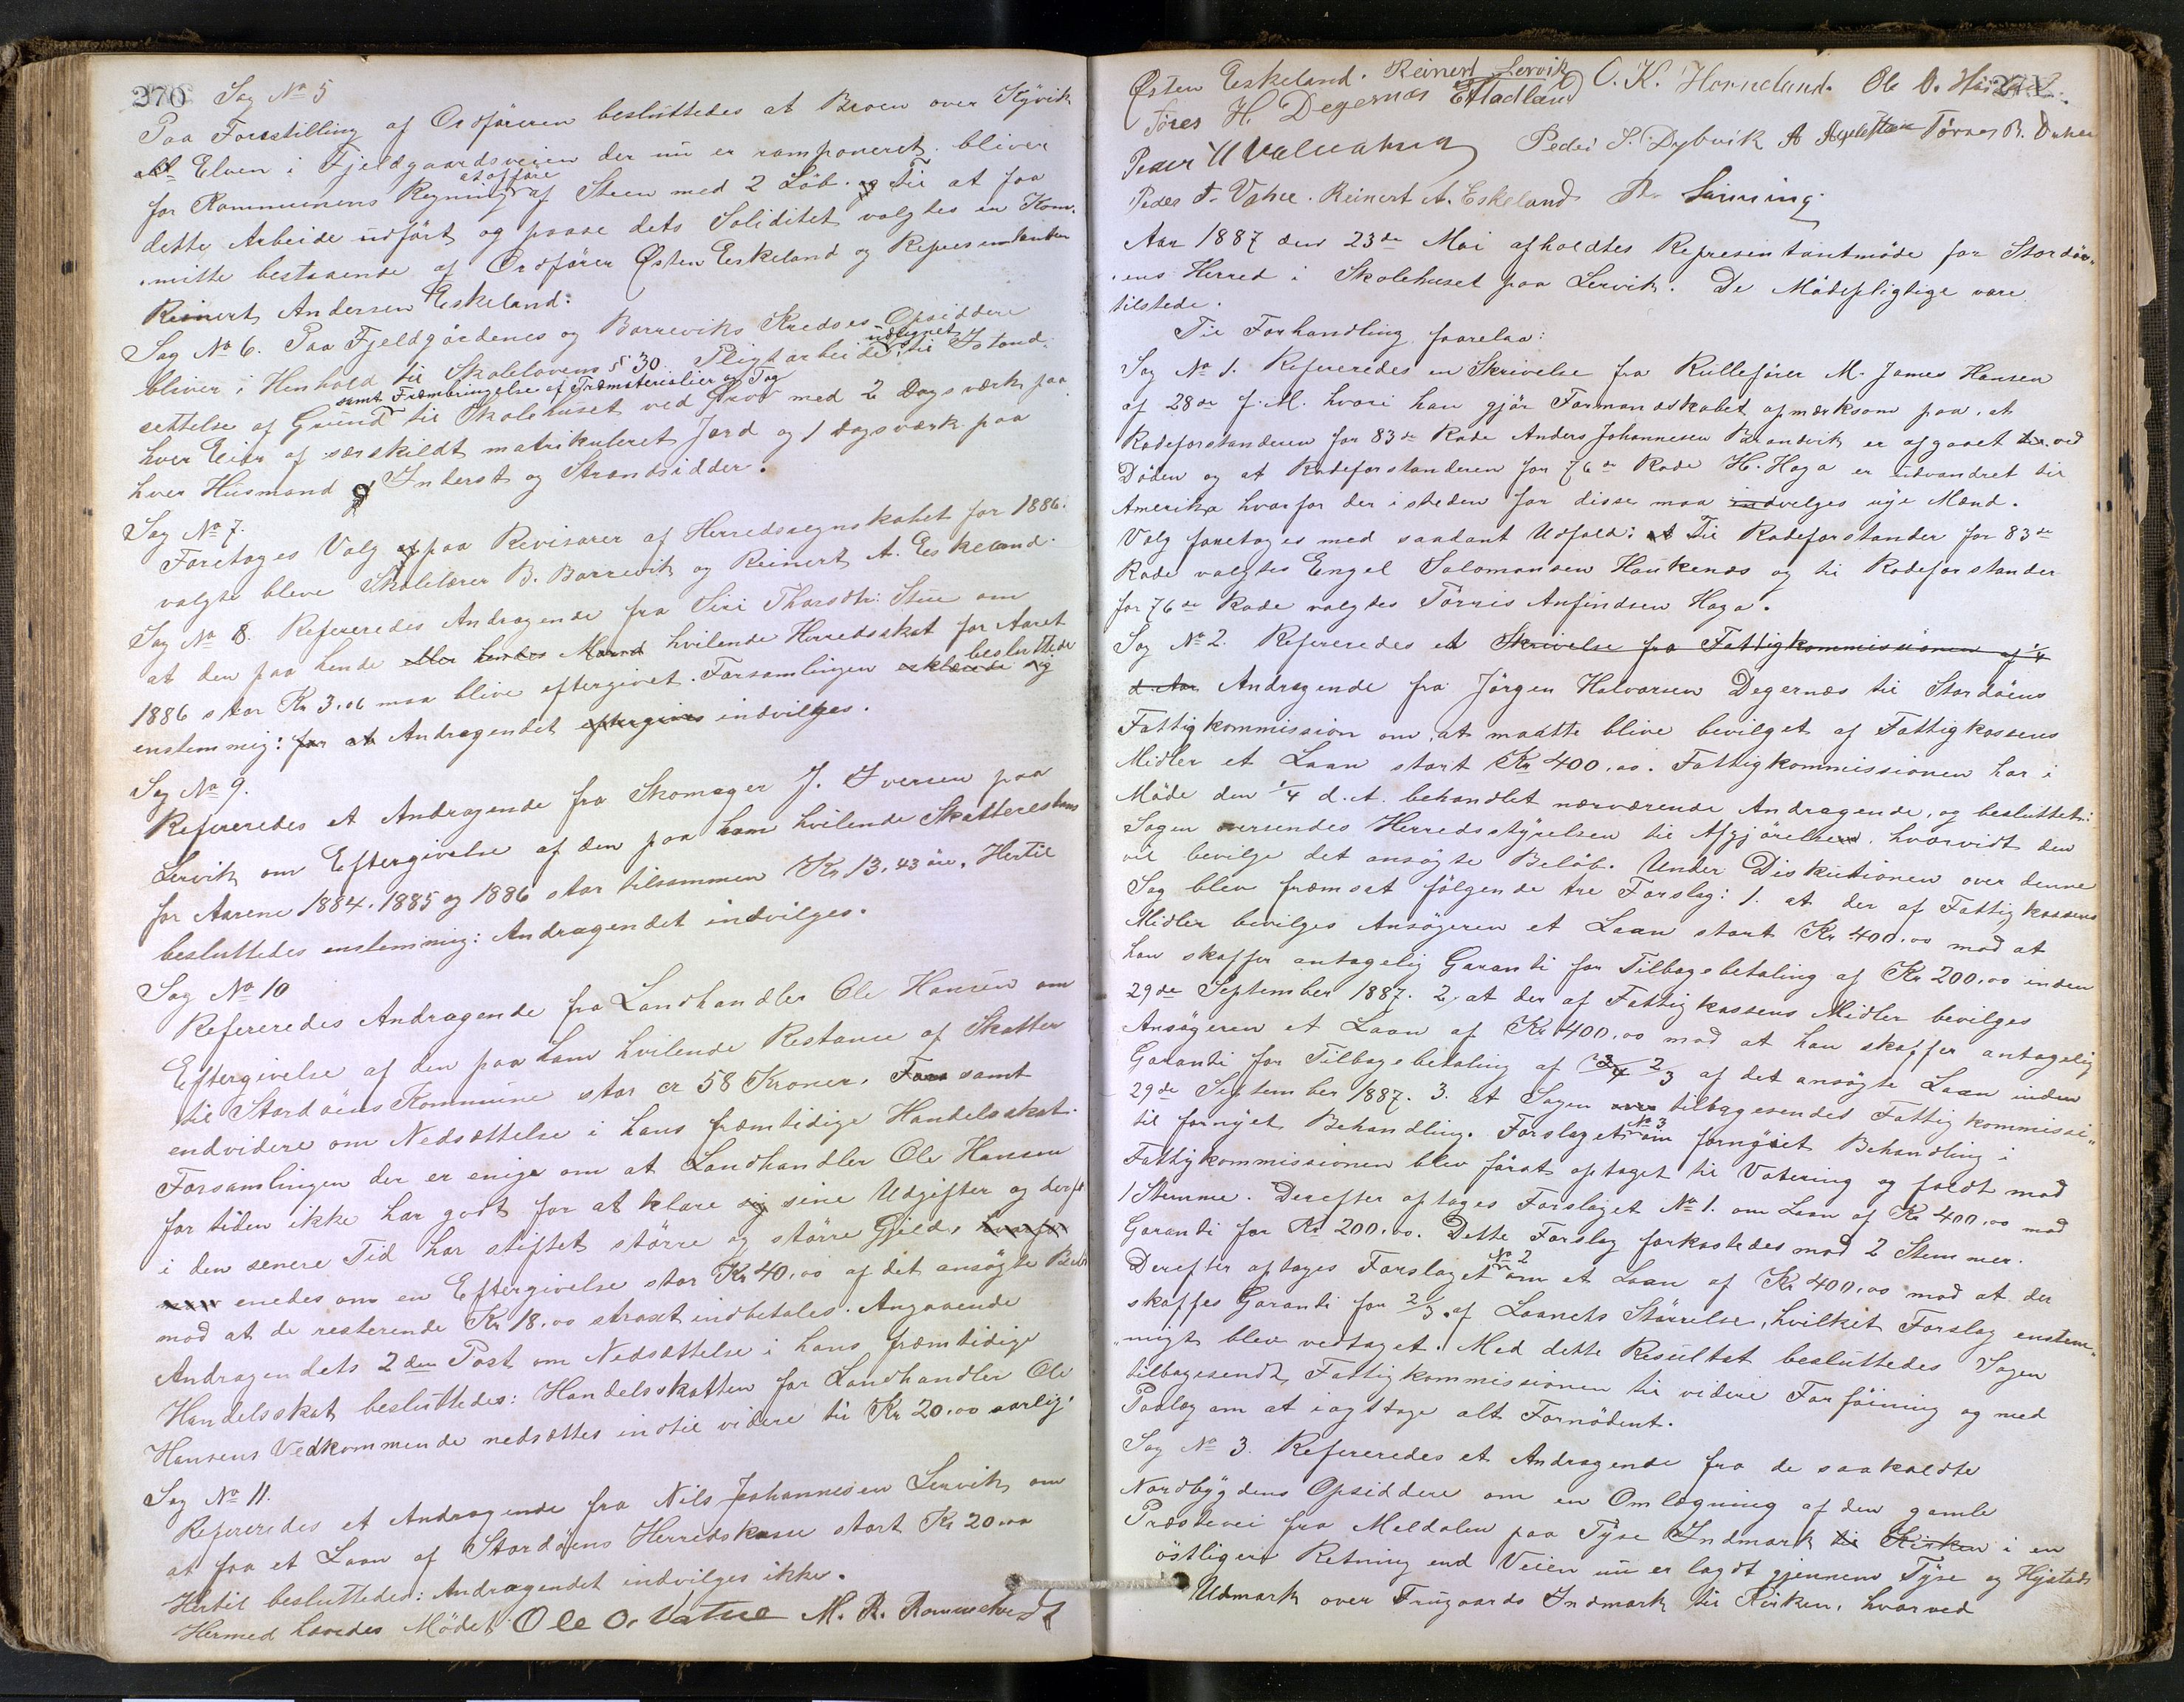 270
Sag No 5
Paa Forestilling af Ordføreren besluttedes at Broen over Kyvik
Elven i Fjeldgaardsveien der nu er ramponeret. bliver
for Kommunens Regning at opføre af Steen med 2 Løb. og Til at faa
dette Arbeide udført og paase dets Soliditet valgtes en Kom-
mitte bestaaende af Ordfører Østen Eskeland og Representanten
Reinert Andersen Eskeland.
Sag No 6. Paa Fjeldgårdenes og Borreviks Kredses Opsiddere
bliver i Henhold til Skolelovens § 30 Pligtarbeide udlignet til Istand-
settelse af Grund samt Frembringelse af Træmaterialier og Tag til Skolehuset ved Hus med 2 Dagsværk paa
hver Eier af særskildt matrikuleret Jord og 1 Dagsværk paa
hver Husmand og Inderst og Strandsidder.
Sag No 7.
Foretoges Valg af paa Revisorer af Herredsregnskabet for 1886.
valgte bleve Skolelærer B. Borrevik og Reinert A. Eskeland.
Sag No 8. Refereredes Andragende fra Siri Thorsdtr. Stue om
at den paa hende eller hendes Mand hvilende Herredsskat for Aaret
1886 stor Kr 3.06 maa blive eftergivet. Forsamlingen erklærede og besluttede
enstemmig: for at Andragendet eftergives indvilges.
Sag No 9.
Refereredes et Andragende fra Skomager J. Iversen paa
Lervik om Eftergivelse af den paa ham hvilende Skatterestans
for Aarene 1884. 1885 og 1886 stor tilsammen Kr 13.43 øre. Hertil
besluttedes enstemmig: Andragendet indvilges.
Sag No 10
Refereredes Andragende fra Landhandler Ole Hansen om
Eftergivelse af den paa ham hvilende Restance af Skatter
til Stordøens Kommune stor cr 58 Kroner. Fors samt
endvidere om Nedsættelse i hans fremtidige Handelsskat.
Forsamlingen der er enige om at Landhandler Ole Hansen
for tiden ikke har godt for at klare sig sine Udgifter og derfor
i den senere Tid har stiftet større og større Gjeld, hvorfor
man enedes om en Eftergivelse stor Kr 40.00 af det ansøgte Beløb
mod at de resterende Kr 18.00 straxt indbetales. Angaaende
Andragendets 2den Post om Nedsættelse i hans fremtidige
Handelsskat besluttedes: Handelsskatten for Landhandler Ole
Hansens Vedkommende nedsættes indtil videre til Kr 20.00 aarlig.
Sag No 11.
Refereredes et Andragende fra Nils Johannesen Lervik om
at faa et Laan af Stordøens Herredskasse stort Kr 20.00
Hertil besluttedes: Andragendet indvilges ikke.
Hermed hævedes Mødet. Ole O. Vatne M. R. Rommetvedt
Østen Eskeland. Reinert Lervik O. K. Horneland. Ole O.
Tøres H. Degernæs E Adland
Peder Valvatna Peder S. Dybvik A Tørres B.
Peder T. Vatne. Reinert A. Eskeland
Aar 1887 den 23de Mai afholdtes Representantmøde for Stordø-
ens Herred i Skolehuset paa Lervik. De Mødepligtige vare
tilstede.
Til Forhandling forelaa:
Sag No 1. Refereredes en Skrivelse fra Rullefører M. James Hansen
af 28de f. M. hvori han gjør Formandskabet opmærksom paa, at
Rodeforstanderen for 83de Rode Anders Johannesen Brandvik er afgaaet ved
Døden og at Rodeforstanderen for 76de Rode H. Haga er udvandret til
Amerika hvorfor der isteden for disse maa indvelges nye Mænd.
Valg foretages med saadant Udfald: at Til Rodeforstander for 83de
Rode valgtes Engel Salomonsen Haukenæs og til Rodeforstander
for 76de Rode valgdes Tørris Anfindsen Haga.
Sag No 2. Refereredes et Skrivelse fra Fattigkommissionen af ¼
d. Aar Andragende fra Jørgen Halvorsen Degernæs til Stordøens
Fattigkommission om, at maatte blive bevilget af Fattigkassens
Midler et Laan stort Kr 400.00. Fattigkommissionen har i
Møde den ¼ d. A. behandlet nærværende Andragende, og besluttet:
Sagen oversendes Herredsstyrelsen til Afgjørelsen, hvorvidt den
vil bevilge det ansøgte Beløb. Under Diskutionen over denne
Sag blev fremsat følgende tre Forslag: 1. at der af Fattigkassens
Midler bevilges Ansøgeren et Laan stort Kr 400.00 mod at
han skaffer antagelig Garanti for Tilbagebetaling af Kr 200.00 inden
29de September 1887. 2, at der af Fattigkassens Midler bevilges
Ansøgeren et Laan af Kr 400.00 mod at han skaffer antagelig
Garanti for Tilbagebetaling af ¾ 2/3 af det ansøgte Laan inden
29de September 1887. 3. at Sagen over tilbagesendes Fattigkommissi-
til fornyet Behandling. Forslaget No 3 om fornøiet Behandling i
Fattigkommissionen blev først optaget til Votering og faldt mod
1 Stemme. Derefter optages Forslaget No 1. om Laan af Kr 400.00 mod
Garanti for Kr 200.00. Dette Forslag forkastedes mod 2 Stemmer.
Derefter optages Forslaget No 2 om et Laan af Kr 400.00 mod at der
skaffes Garanti for 2/3 af Laanets Størrelse, hvilket Forslag enstem-
migt blev vedtaget. Med dette Resultat besluttedes Sagen
tilbagesendt Fattigkommissionen til videre Forføining og med
Paalæg om at iagttage alt Fornødent.
Sag No 3. Refereredes et Andragende fra de saakaldte
Nordbygdens Opsiddere om en Omlægning af den gamle
Prestevei fra Meldalen paa Tyse Indmark til Kirken i en
østligere Retning end Veien nu er lagdt gjennem Tyse og Hystads
Udmark over Frugaards Indmark til Kirken, hvorved